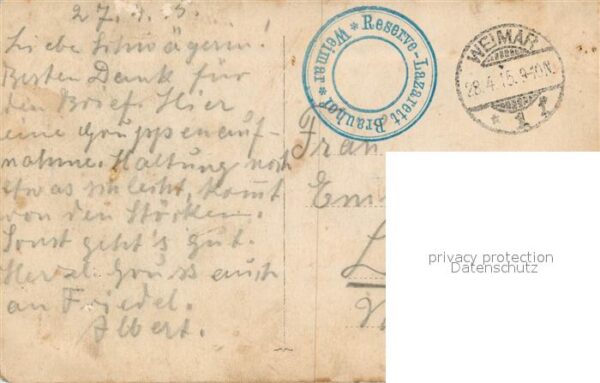 27.4.15.
Liebe Schwägerin!
Besten Dank für
den Brief. Hier
eine Gruppenauf-
nahme. Haltung noch
etwas schlecht, kommt
von den Stöcken.
Sonst geht's gut.
Herzl. Gruss auch
an Friedel.
Albert.
* Reserve-Lazarett Brauhof * Weimar
WEIMAR
28.4.15.9-10N.
* 1 f
Frau
privacy protection
Datenschutz